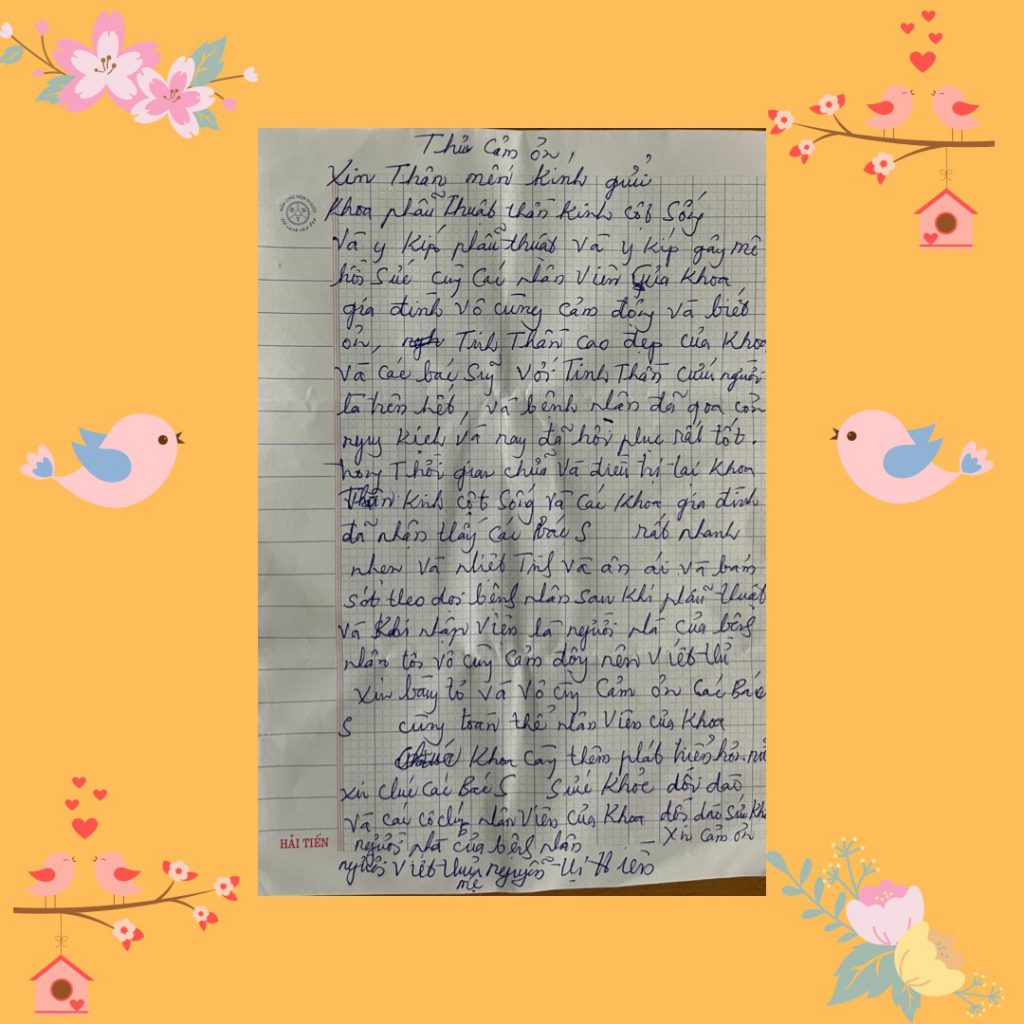 Thư cảm ơn,
Xin Thân mến kính gửi
Khoa phẫu thuật thần kinh cột sống
Và y kíp phẫu thuật và y kíp gây mê
hồi sức cùng các nhân viên của khoa
gia đình vô cùng cảm động và biết
ơn, Tinh Thần cao đẹp của khoa
và các bác sỹ với Tinh Thần cứu người
là trên hết, và bệnh nhân đã qoa cơn
nguy kịch và nay đã hồi phục rất tốt.
Thời gian chữa và điều trị tại khoa
Thần kinh cột sống và các khoa gia đình
đã nhận thấy các Bác S rất nhanh
nhẹn và nhiệt Tình và ân ái và bám
sát theo dõi bệnh nhân sau khi phẫu thuật
và khi nhập viện là người nhà của bệnh
nhân tôi vô cùng cảm động nên viết thư
xin bày tỏ và vô cùng cảm ơn các Bác
S cùng toàn thể nhân viên của khoa
Chúc Khoa càng thêm phát triển hơn nữa
xin chúc các Bác S Sức khỏe dồi dào
và các cô chú nhân viên của khoa dồi dào sức khỏe
người nhà của bệnh nhân Xin cảm ơn
HẢI TIẾN
người viết thư mẹ nguyễn Thị Hiền